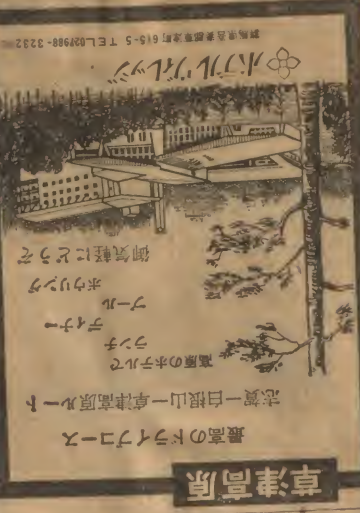 草津高原
最高のドライブコース
志賀ー白根山ー草津高原ルート
高原のホテルで
ランチ
ディナー
プール
ボウリング
御気軽にどうぞ
ホテルヴィレッジ
群馬県吾妻郡草津町 TEL027988-3232